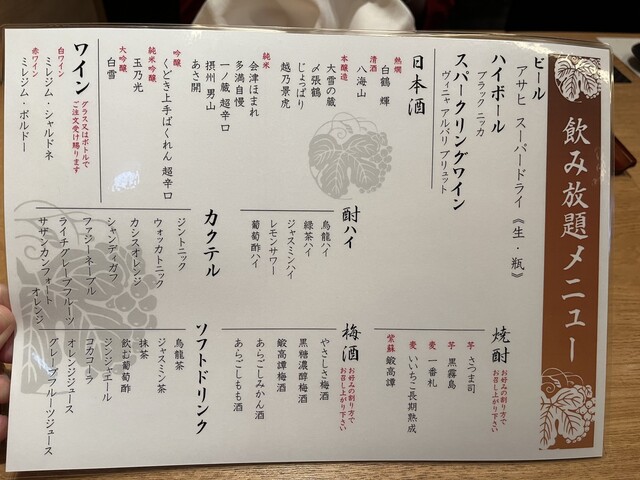 飲み放題メニュー
ビール
アサヒ スーパードライ《生・瓶》
ハイボール
ブラックニッカ
スパークリングワイン
ヴィニャ アルバリ ブリュット
日本酒
熱燗
白鶴 輝
清酒
八海山
本醸造
大雪の蔵
〆張鶴
じょっぱり
越乃景虎
純米
会津ほまれ
多満自慢
一ノ蔵 超辛口
摂州 男山
あさ開
吟醸
くどき上手 ばくれん 超辛口
純米吟醸
玉乃光
大吟醸
白雪
ワイン
グラス又はボトルで
ご注文受け賜ります
白ワイン
ミレジム・シャルドネ
赤ワイン
ミレジム・ボルドー
酎ハイ
烏龍ハイ
緑茶ハイ
ジャスミンハイ
レモンサワー
葡萄酢ハイ
カクテル
ジントニック
ウォッカトニック
カシスオレンジ
シャンディガフ
ファジーネーブル
ライチグレープフルーツ
サザンカンフォート オレンジ
焼酎
お好みの割り方で
お召し上がり下さい
芋 さつま司
芋 黒霧島
麦 一番札
麦 いいちこ長期熟成
紫蘇 鍛高譚
梅酒
お好みの割り方で
お召し上がり下さい
やさしさ梅酒
黒糖濃醇梅酒
鍛高譚梅酒
あらごしみかん酒
あらごしもも酒
ソフトドリンク
烏龍茶
ジャスミン茶
抹茶
飲む葡萄酢
ジンジャエール
コカコーラ
オレンジジュース
グレープフルーツジュース